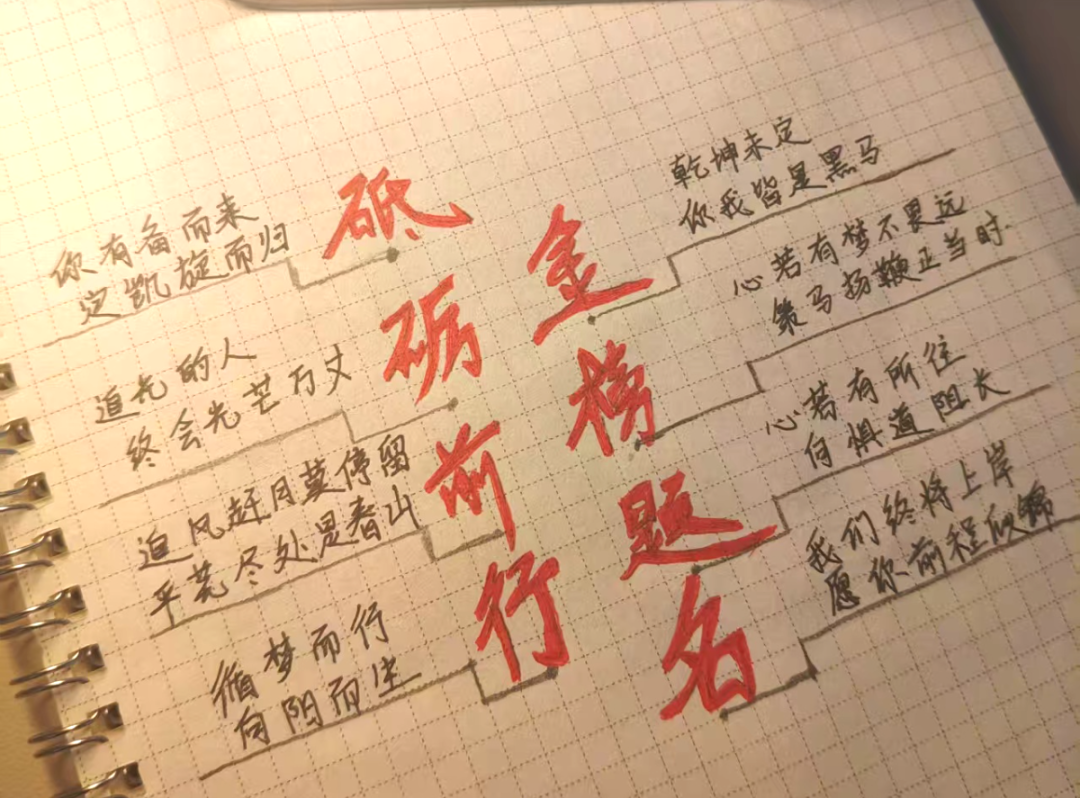 砥砺前行
金榜题名
你有备而来
定凯旋而归
追光的人
终会光芒万丈
追风赶月莫停留
平芜尽处是春山
循梦而行
向阳而生
乾坤未定
你我皆是黑马
心若有梦不畏远
策马扬鞭正当时.
心若有所往
何惧道阻长
我们终将上岸
愿你前程似锦